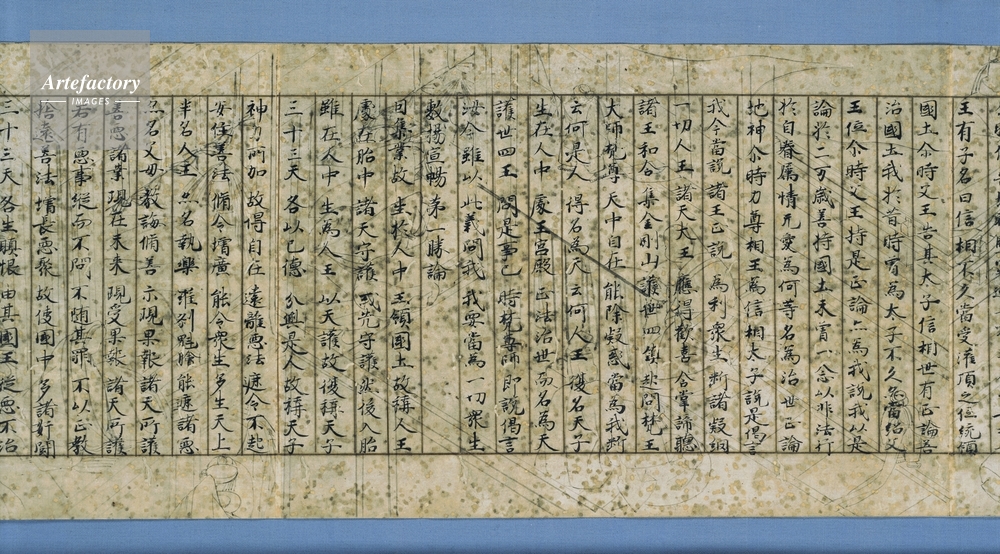 王有子名曰信相不久當受灌頂之位統領
國土尒時父王告其太子信相世有正論善
治國土我於昔時曾為太子不久亦當紹父
王位尒時父王持是正論亦為我說我以是
論於二万歲善持國土未曾一念以非法行
於自眷屬情无愛為何等名為治世正論
地神尒時力尊相王為信相太子說是偈言
我今當說 諸王正說 為利衆生 斷諸疑網
一切人王 諸天天王 應得歡喜 合掌諦聽
諸王和合 集金剛山 護世四鎮 起問梵王
大師梵尊 天中自在 能除疑惑 當為我斷
云何是人 得名為天 云何人王 復名天子
生在人中 處王宮殿 正法治世 而名為天
護世四王 問是事已 時梵尊師 即說偈言
汝今雖以 此義問我 我要當為 一切衆生
敷揚宣暢 第一勝論
因集業故 生於人中 王領國土 故稱人王
處在胎中 諸天守護 或先守護 然後入胎
雖在人中 生為人王 以天護故 復稱天子
三十三天 各以己德 分與是人 故稱天子
神力所加 故得自在 遠離惡法 遮令不起
安住善法 脩令增廣 能令衆生 多生天上
半名人王 亦名執樂 羅剎魁膾 能遮諸惡
亦名父母 教誨脩善 示現果報 諸天所護
善惡諸業 現在未來 現受果報 諸天所護
若有惡事 縱而不問 不隨其罪 不以正教
捨棄善法 增長惡聚 故使國中 多諸姧鬪
三十三天 各生瞋恨 由其國王 縱惡不治
Artefactory
IMAGES